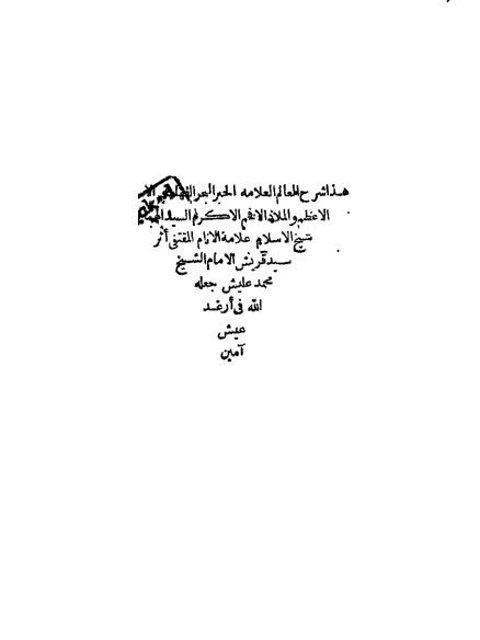 هذا شرح العالم العلامه الحبر البحر الفهامه
الاعظم والملاذ الافخم الاكرم السيد
شيخ الاسلام علامة الانام المقتفى أثر
سيد قريش الامام الشيخ
محمد عليش جعله
الله فى أرغد
عيش
آمين